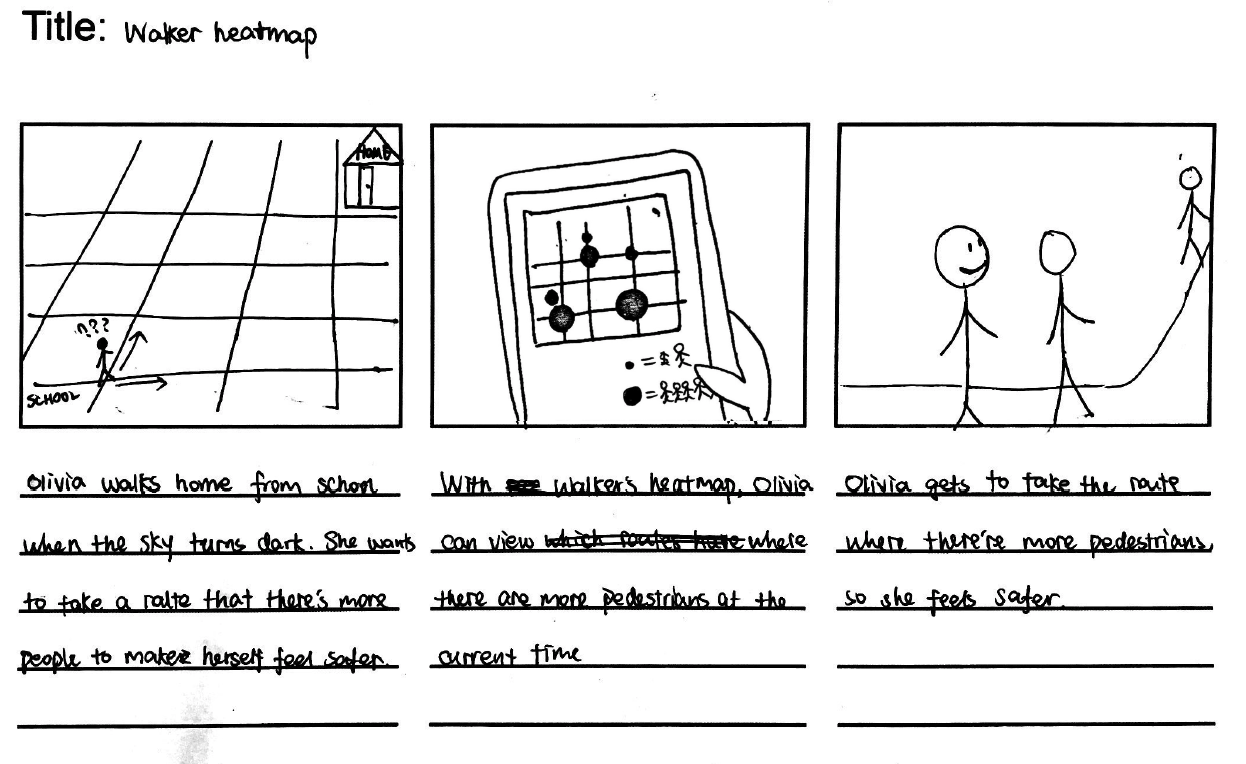 Title: Walker heatmap
HOME
???
SCHOOL
Olivia walks home from school
when the sky turns dark. She wants
to take a route that there's more
people to make herself feel safer.
=
=
With Walker's heatmap, Olivia
can view where
there are more pedestrians at the
current time
Olivia gets to take the route
where there're more pedestrians,
so she feels safer.